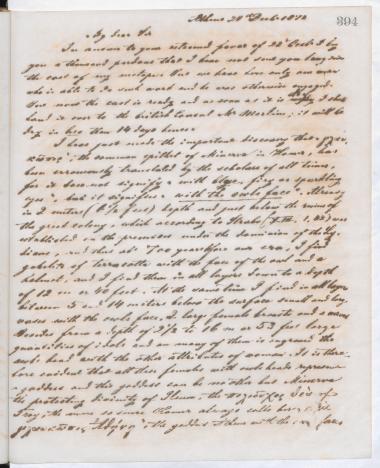 394
Athens 28 Dec 1872
My dear Sir
In answer to your esteemed favor of 22 Octb I beg
you a thousand pardons that I have not sent you long since
the cast of my metope. But we have here only one man
who is able to do such work and he was otherwise engaged.
But now the cast is ready and as soon as it is dry I shall
hand it over to the british Consul Mr Merlin; it will be
dry in less than 14 days hence.
I have just made the important discovery that γλαυ-
κῶπις, the common epithet of Minerva in Homer, has
been erroneously translated by the scholars of all times,
for it does not signify "with blue, fiery or sparkling
eyes", but it signifies "with the owls face". Already
in 2 meters (6⅔ feet) depth and just below the ruins of
the great colony, which according to Strabo (XIII, 1, 42) was
established on the premises under the dominion of the Ly-
dians, and thus abt 700 years before our era, I find
goblets of terracotta with the face of the owl and a
helmet, and I find them in all layers down to a depth
of 12 m or 40 feet. At the same time I find in all layers
between 3 and 14 meters below the surface small and large
vases with the owls face, 2 large female breasts and a navel
Besides from a depth of 2½ to 16 m or 53 feet large
quantities of idols and on many of them is engraved the
owls head with the other attributes of woman. It is there-
fore evident that all these females with owls heads represent
a goddess and this goddess can be no other but Minerva
the protecting divinity of Ilium, the πολιοῦχος θεὸς of
Troy; the more so since Homer always calls her θεὰ
γλαυκῶπις Ἀθήνη, "the goddess Athena with the owls face,